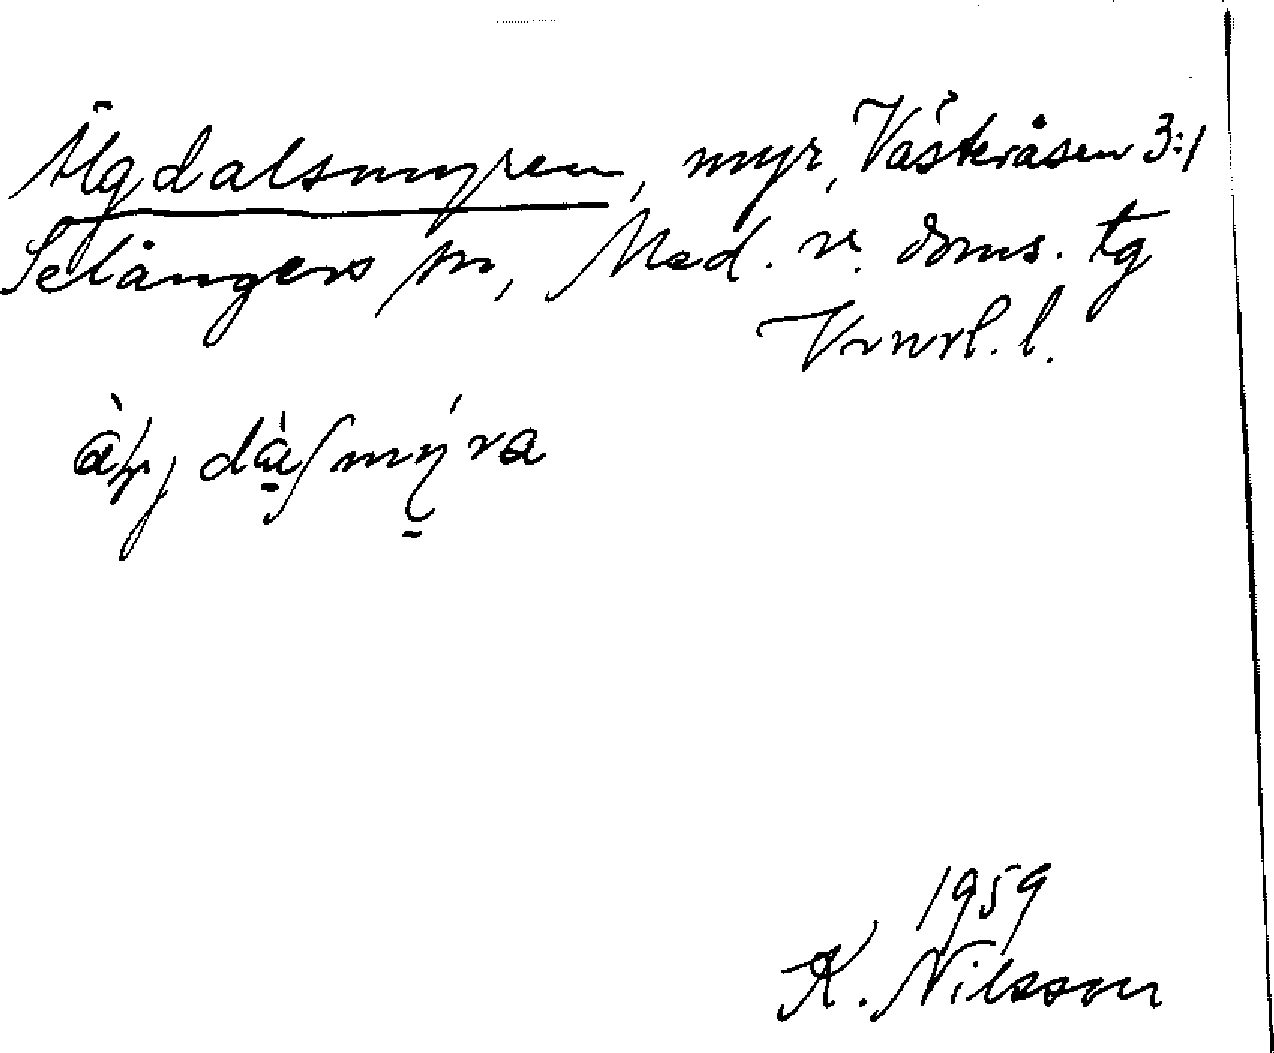 Älgdalsmyren, myr, Västeråsen 3:1
Selångers sn, Med. v. doms. tg
Vrnrl. l.
1959
K. Nilsson